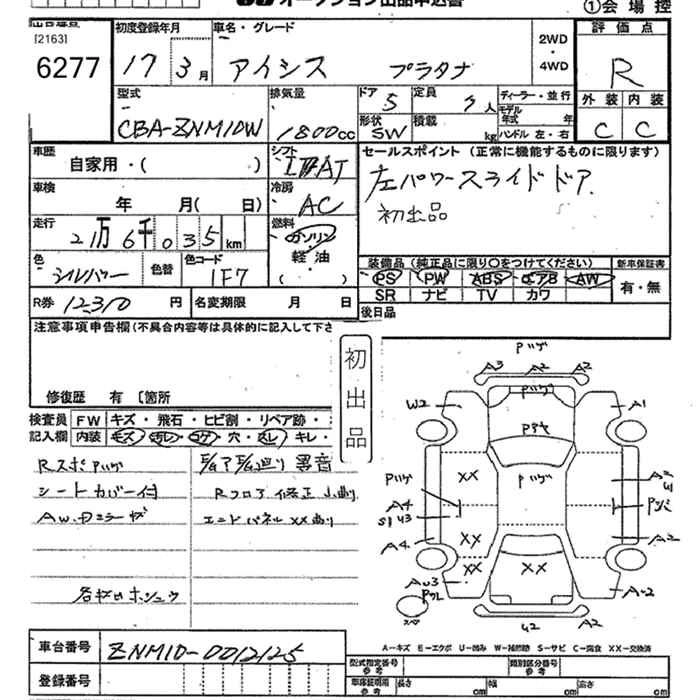 オークション出品申込書
①会場控
[2163]
6277
初度登録年月
17 3月
車名・グレード
アイシス プラタナ
2WD
・
4WD
評価点
R
外装 内装
C C
型式
CBA-ZNM10W
排気量
1800cc
ドア
5
定員
7人
形状
SW
積載
kg
ディーラー・並行
モデル
年式 年
ハンドル 左・右
車歴
自家用・( )
シフト
冷房
AC
車検
年 月( 日)
走行
2万6千035km
燃料
ガソリン
軽油
( )
色
シルバー
色替
色コード
1F7
R券 12310 円
名変期限 月 日
セールスポイント (正常に機能するものに限ります)
左パワースライドドア
初出品
装備品 (純正品に限り〇をつけてください)
PS PW ABS エアB AW
SR ナビ TV カワ
新車保証書
有・無
後日品
注意事項申告欄(不具合内容等は具体的に記入して下さ
修復歴 有 〔箇所
初出品
検査員
記入欄
FW キズ・飛石・ヒビ割・リペア跡・
内装 キズ・汚レ・コゲ・穴・スレ・キレ・
シートカバー付
各キロホシュウ
異音
Rフロア修正 小曲り
エンドパネルXX曲り
A3 A2 A2
W2 A1
XX
A4
A4
XX XX
A2
U2 A2
スペア
A=キズ E=エクボ U=凹み W=補修跡 S=サビ C=腐食 XX=交換済
車台番号 ZNM10-0012125
登録番号
型式指定番号
参考
類別区分番号
参考
車庫証明用
参考
長さ cm
幅 cm
高さ cm